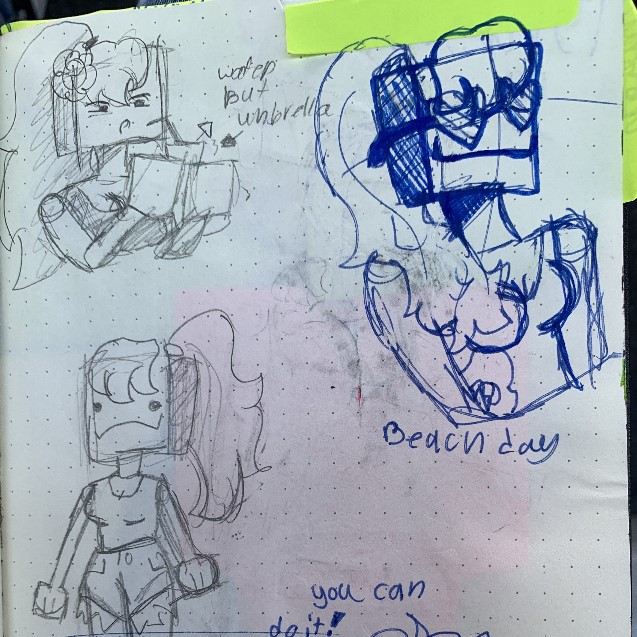 water
But
umbrella
Beach day
you can
do it!